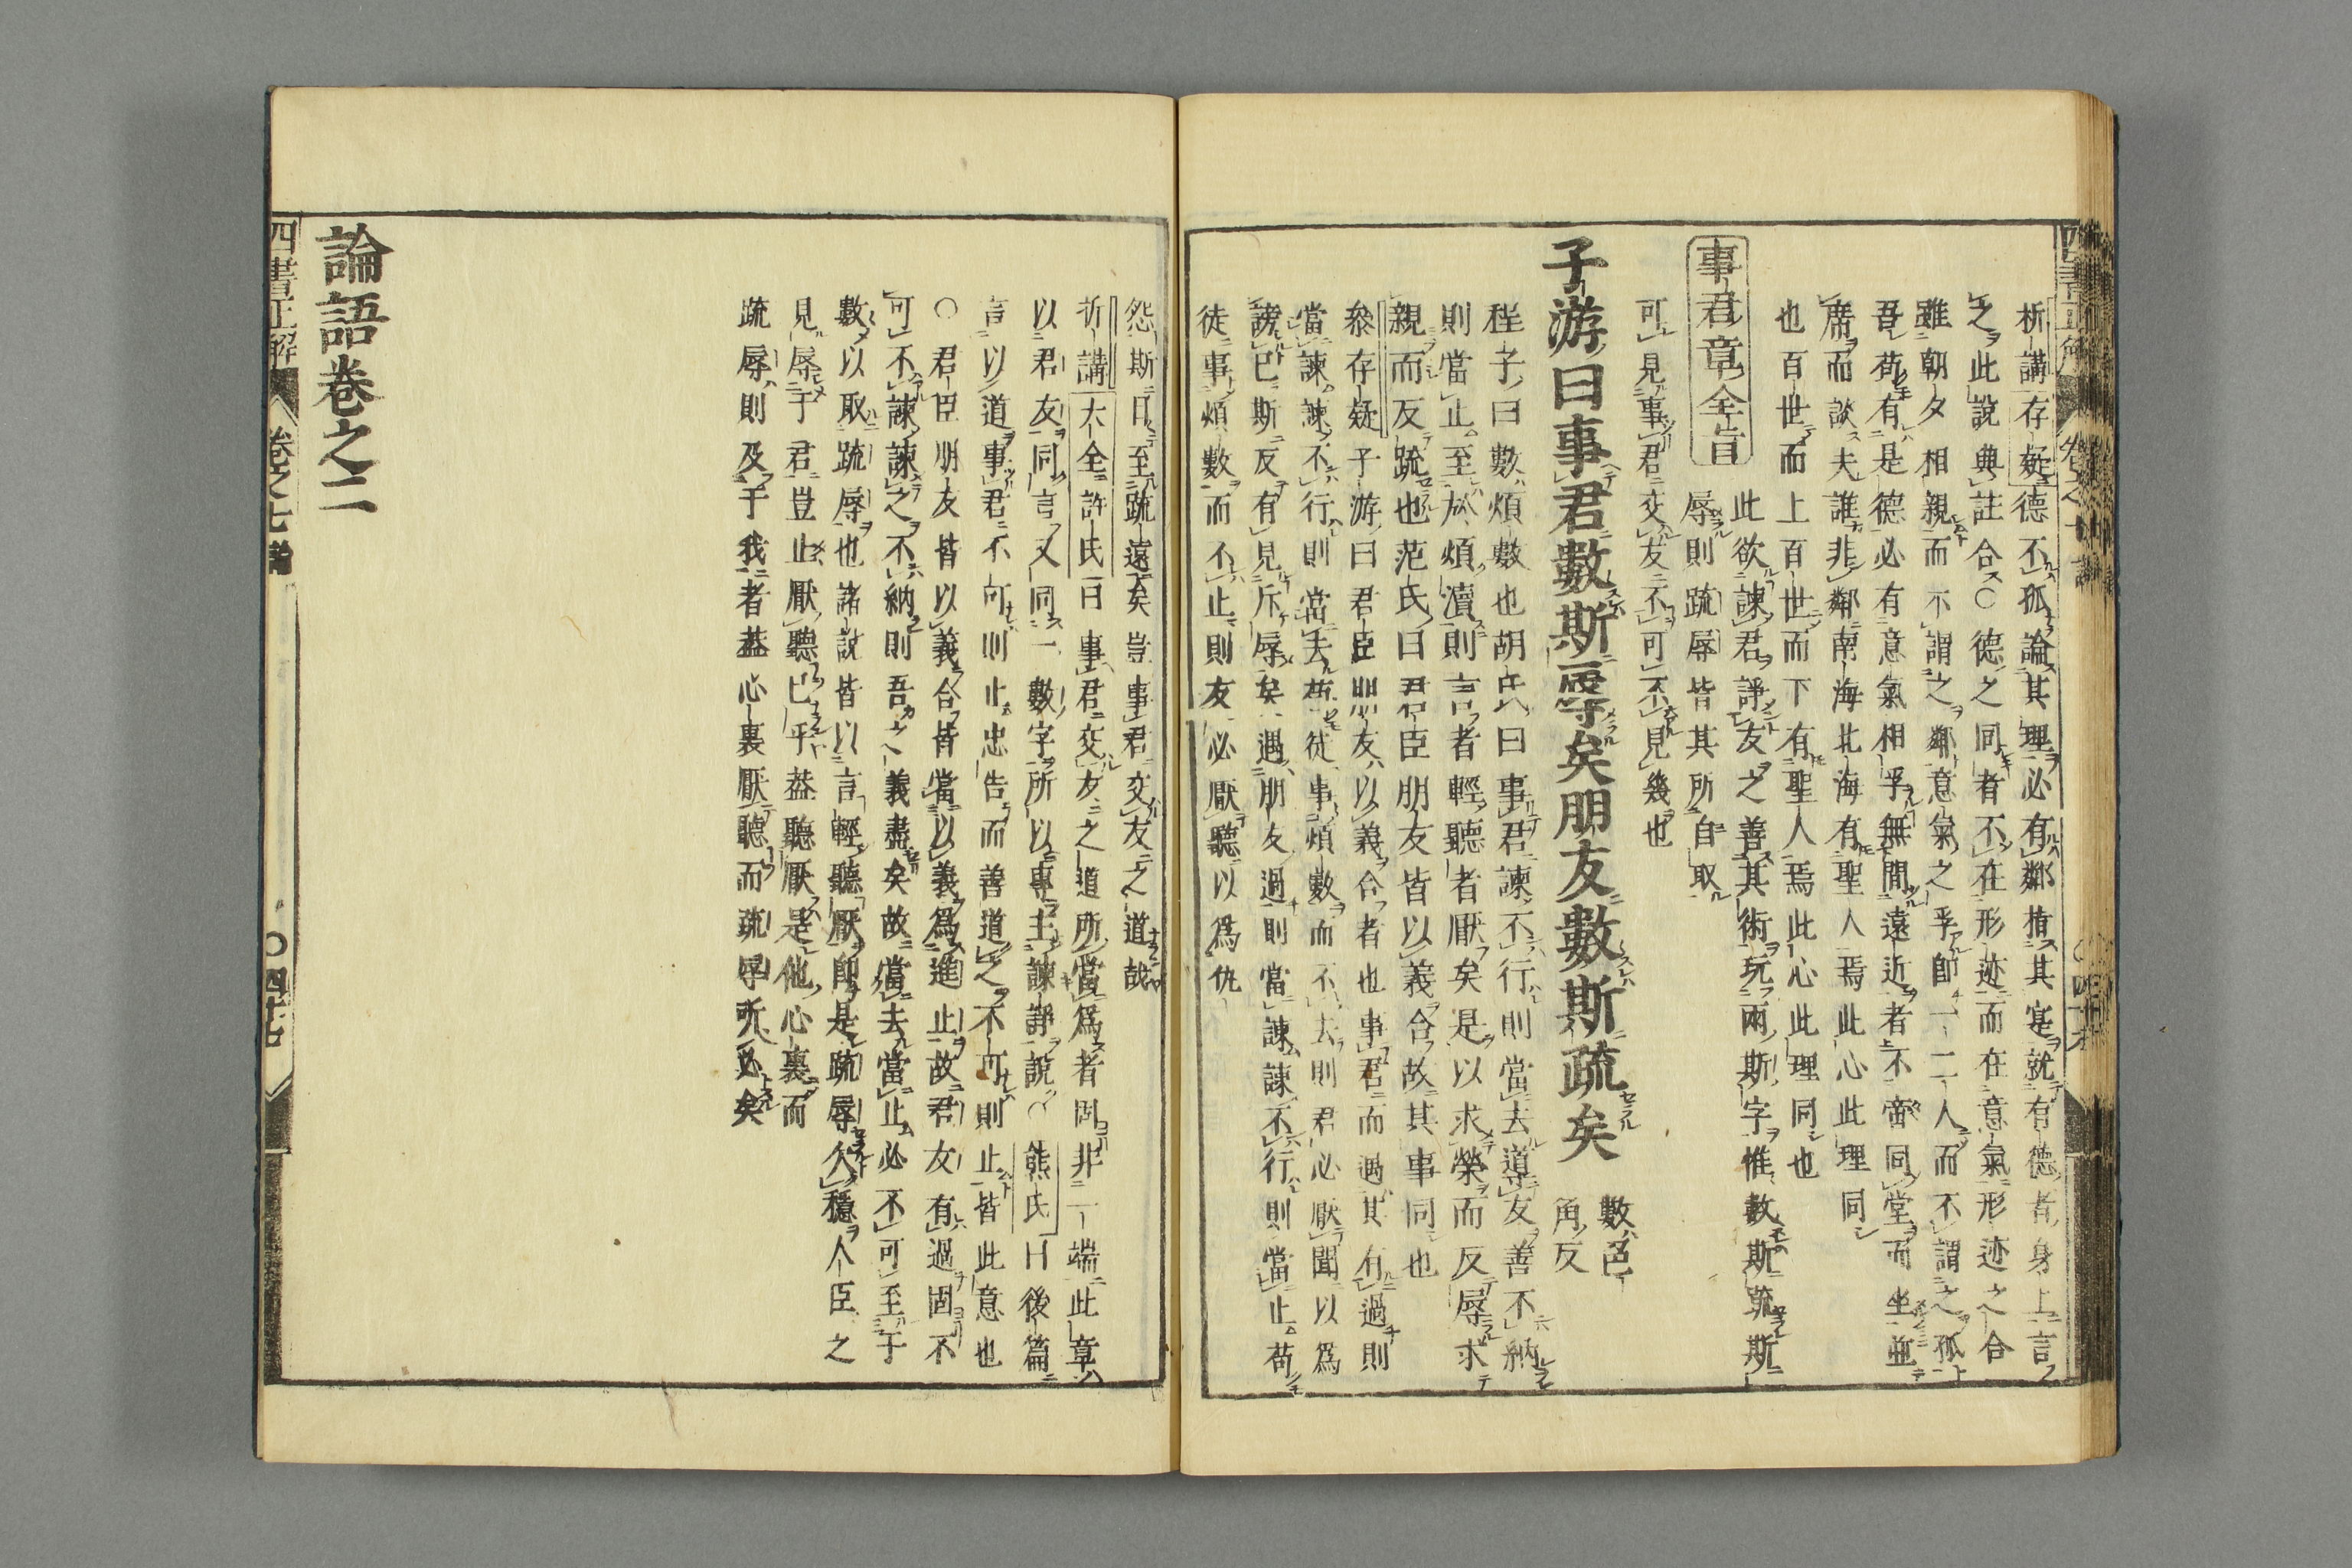 析講存疑德不孤論其理必有鄰指其寔就有德者身上言
之此說典註合○德之同者不在形迹而在意氣形迹之合
雖朝夕相親而不謂之鄰意氣之孚卽一二人而不謂之孤
吾苟有是德必有意氣相孚無間遠近者不啻同堂而坐並
席而談夫誰非鄰南海北海有聖人焉此心此理同
也百世而上百世而下有聖人焉此心此理同也
事君章全旨
此欲諫君諍友之善其術玩兩斯字惟數斯疏斯
辱則疏辱皆其所自取
可見事君交友不可不見幾也
子游曰事君數斯辱矣朋友數斯疏矣
數色
角反
程子曰數煩數也胡氏曰事君諫不行則當去導友善不納
則當止至於煩瀆則言者輕聽者厭矣是以求榮而反辱求
親而反疏也范氏曰君臣朋友皆以義合故其事同也
參存疑子游曰君臣朋友以義合者也事君而過其有過則
當諫諫不行則當去苟徒事煩數而不去則君必厭聞以爲
謗己斯反有見斥辱矣遇朋友過則當諫諫不行則當止苟
徒事煩數而不止則友必厭聽以爲仇
怨斯日至疏遠矣豈事君交友之道哉
析講大全許氏曰事君交友之道所當爲者固非一端此章
以君友同言又同一數字所以專主諫諍說○熊氏曰後篇
言以道事君不可則止忠告而善道之不可則止皆此意也
○君臣朋友皆以義合皆當以義爲進止故君友有過固不
可不諫諫之不納則吾之義盡矣故當去當止必不可至于
數以取疏辱也諸說皆以言輕聽厭卽是疏辱欠穩人臣之
見辱于君豈止厭聽已乎葢聽厭是他心裏而
疏辱則及于我者葢心裏厭聽而疏辱所必矣
論語卷之二
四書正解
卷之七
論
○四十七